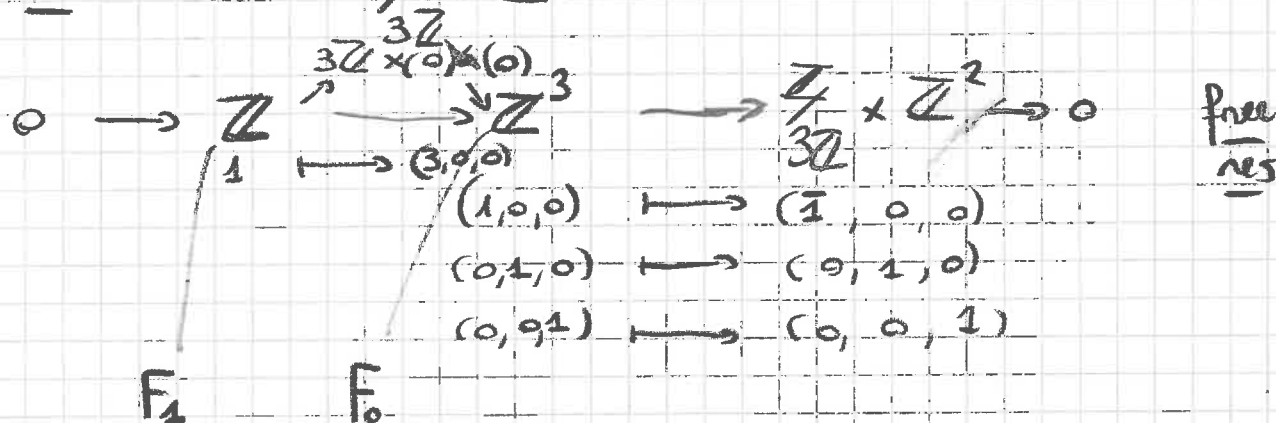 3ℤ
3ℤ ×(0)×(0)
0 → ℤ → ℤ³ → ℤ/3ℤ × ℤ² → 0 free
1 ↦ (3,0,0) res
(1,0,0) ↦ (1̄, 0, 0)
(0,1,0) ↦ (0, 1, 0)
(0,0,1) ↦ (0, 0, 1)
F₁ F₀